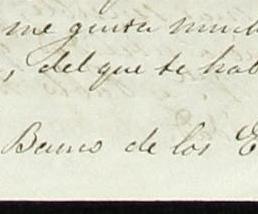 me gusta much
, del que te hab
Banco de los E